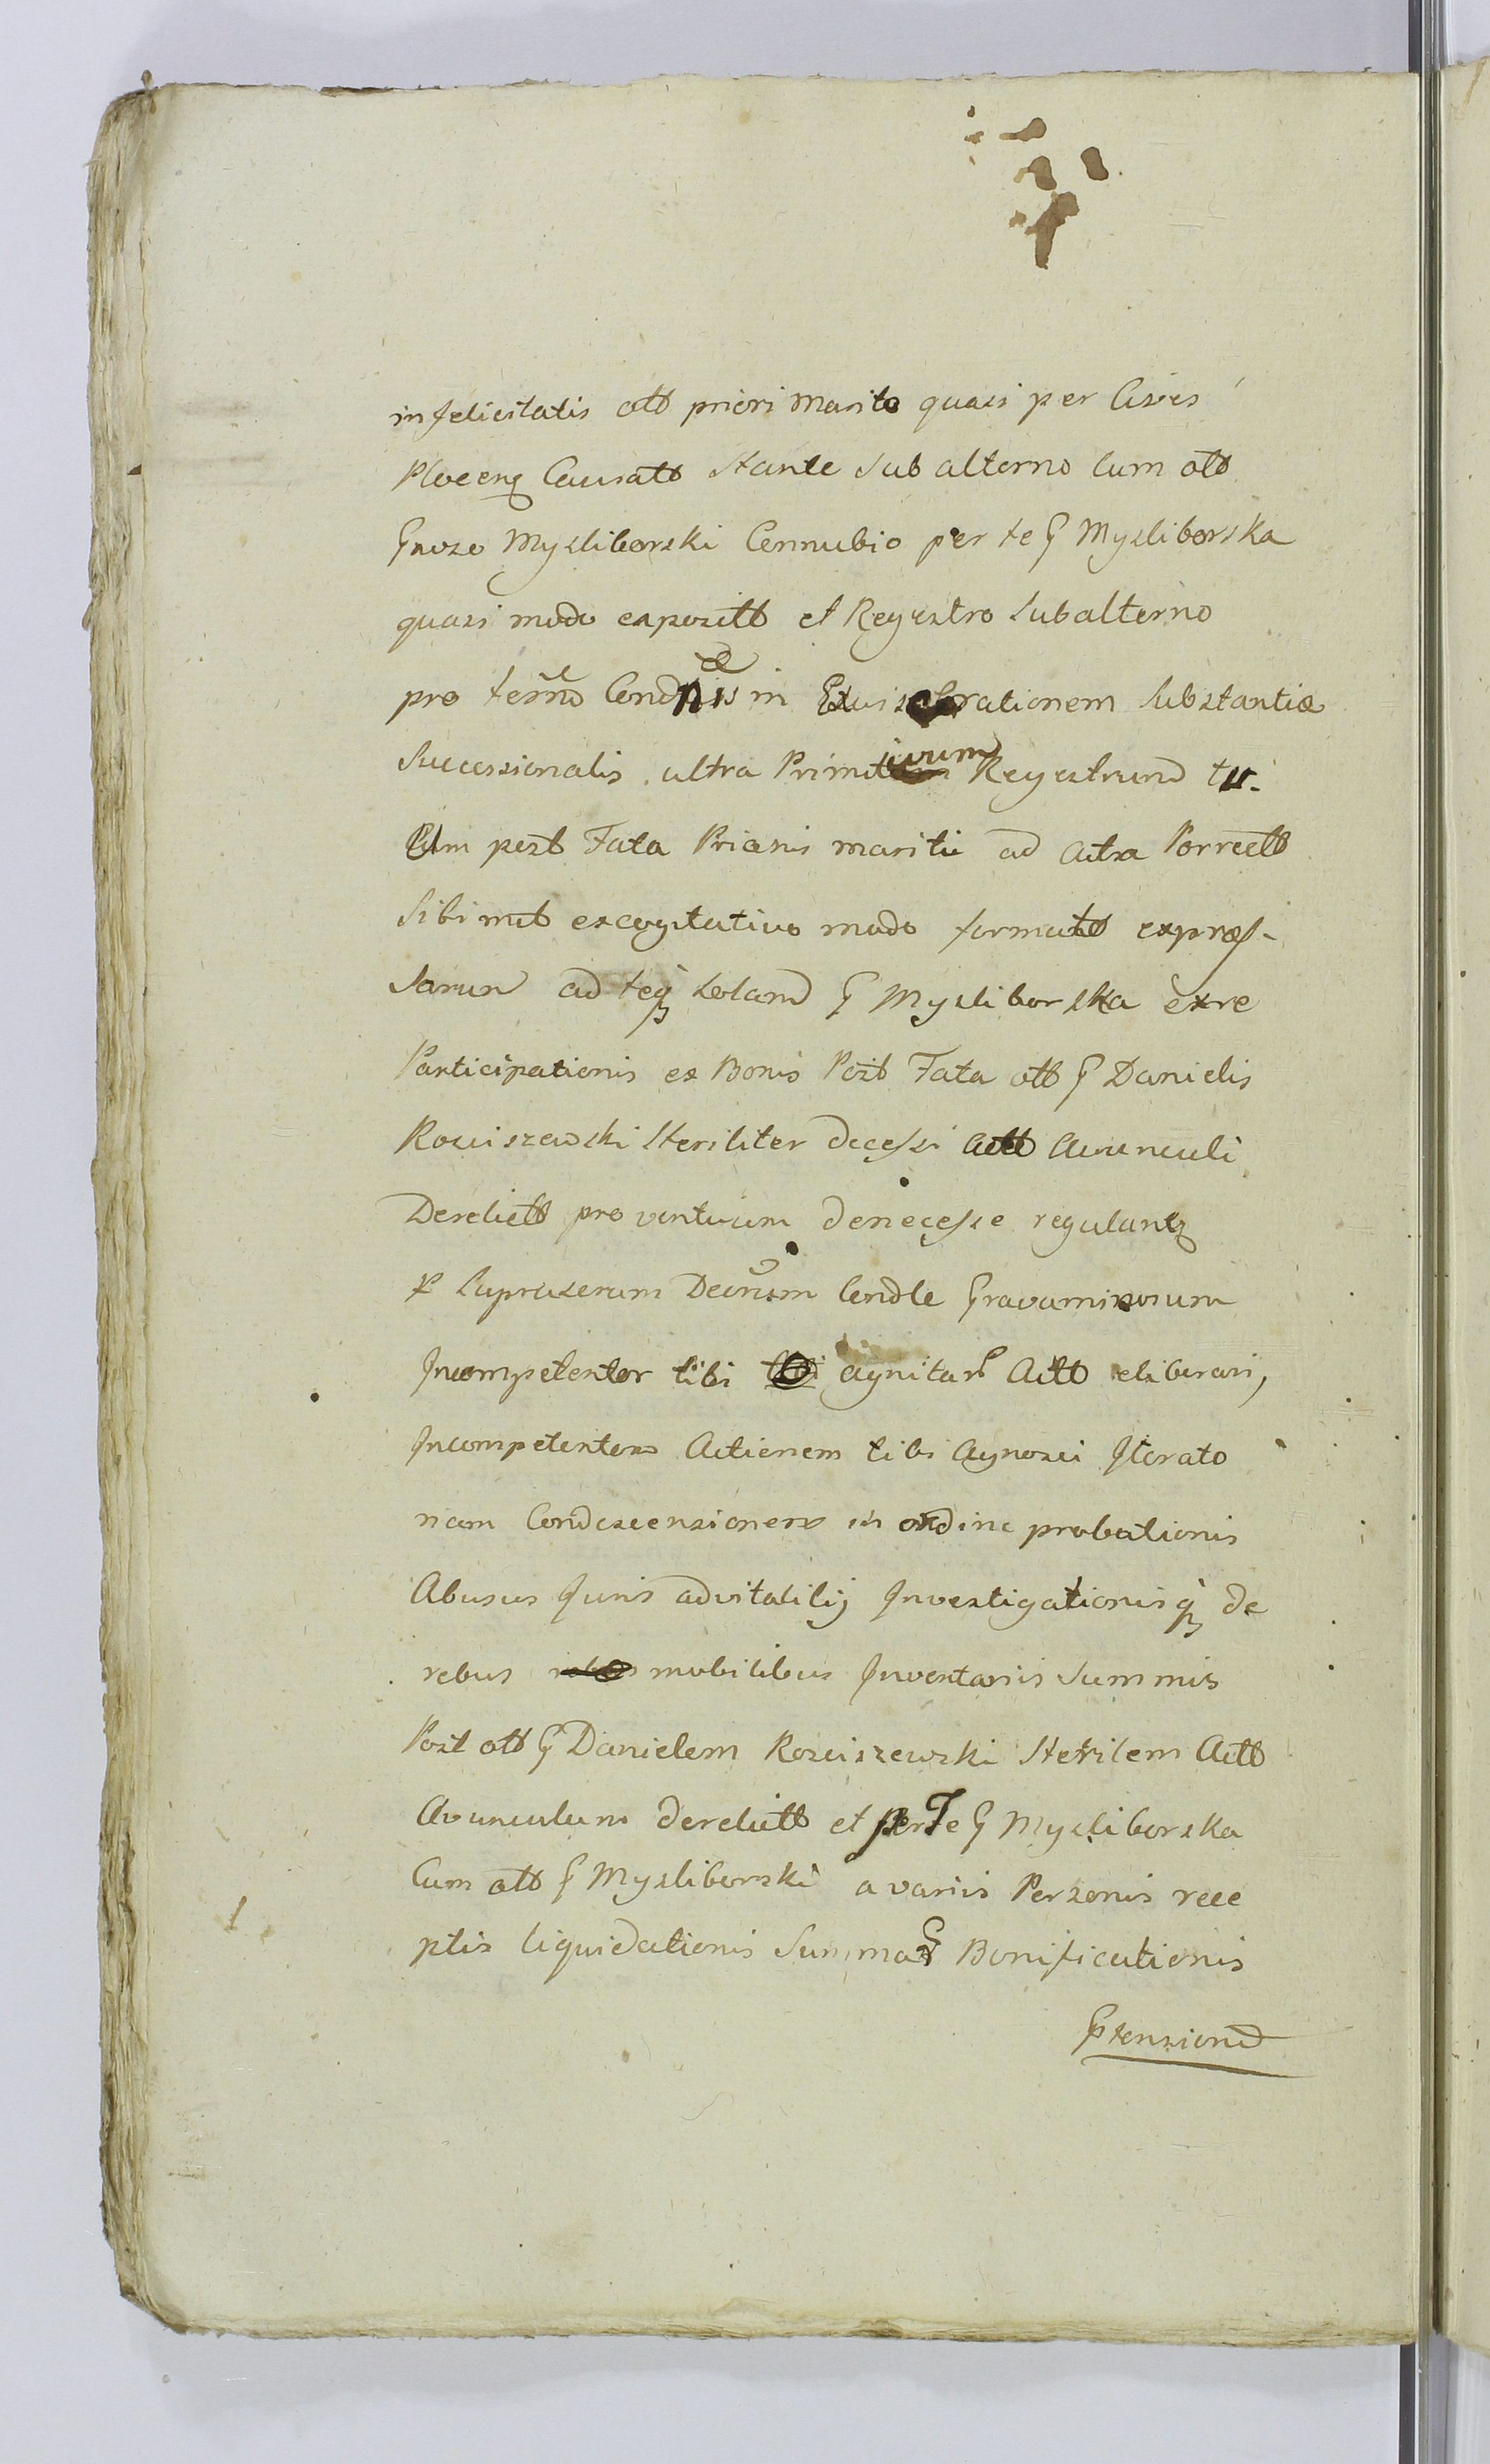 infelicitatis olb priori Marito quasi per Cives
Plocenq Causatt stante Subalterno Cum olb
Gnoso Mysliborski Connubio per te G Mysliborska
quasi modo exposittt et Regestro Subalterno
pro termo Condnis in Eviscerationem Substantiæ
Successionalis ultra Primitivum Regestrum tu-
um post Fata Prioris mariti ad acta Porrectt
Sibimet excogitativo modo formatt expres-
sarum ad teq solam G Mysliborska exre
Participationis ex Bonis Post Fata olb G Danielis
Rosciszewski Steriliter decessi Actt Avunculi
Derelictt proventuum denecesse regulanq
P Supraserum Decrum Condle Gravaminosum
Incompetenter tibi agnitar Actt eliberari,
Incompetentem Actionem tibi Agnosci Iterato
riam Condescensionem in ordine probationis
Abusus Juris advitalitij Investigationisq de
rebus mobilibus Inventariis Summis
Post olb G Danielem Rosciszewski Sterilem Actt
Avunculum derelictt et per Te G Mysliborska
Cum olb G Mysliborski a variis Personis rece
ptis liquidationis Summar Bonificationis
Ptensiond